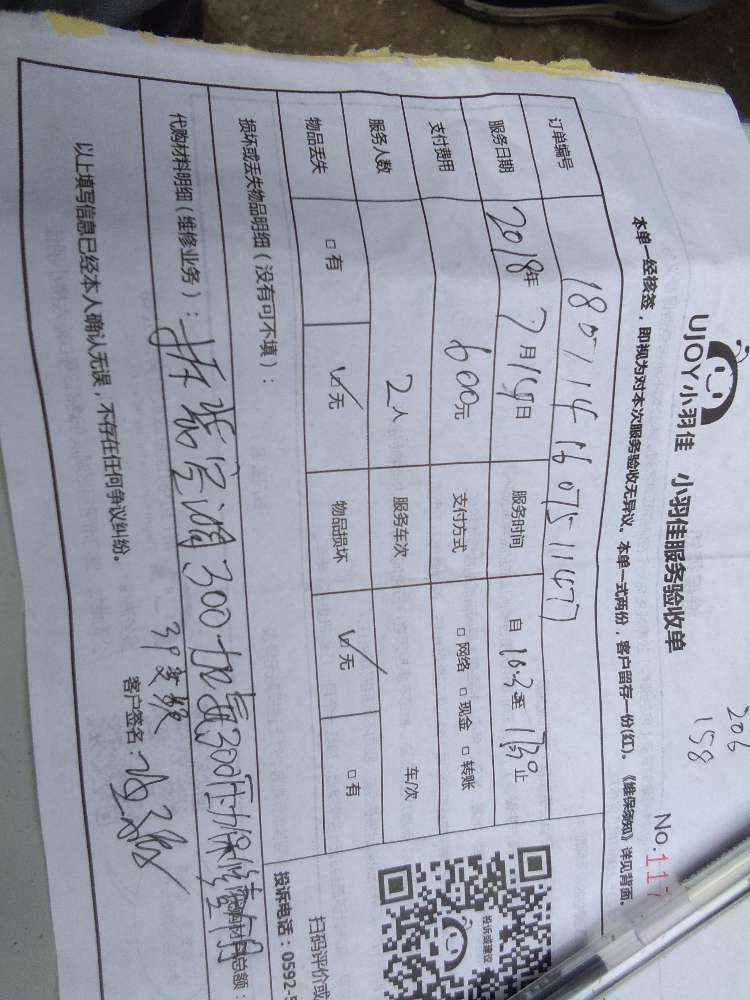 206
158
UJOY小羽佳 小羽佳服务验收单
No.117
本单一经核签，即视为对本次服务验收无异议。本单一式两份，客户留存一份(红)。《维保须知》详见背面。
订单编号
服务日期 2018年7月14日 服务时间 自 16:30至 17:30止
支付费用 600元 支付方式 □ 网络 □ 现金 □ 转账
服务人数 2人 服务车次 车/次
物品丢失 □ 有 ☑ 无 物品损坏 ☑ 无 □ 有
损坏或丢失物品明细（没有可不填）：
代购材料明细（维修业务）：拆装空调300加氟300 保修 个月
材料总额：
以上填写信息已经本人确认无误，不存在任何争议纠纷。
客户签名：
投诉或建议
扫码评价或
投诉电话：0592-5